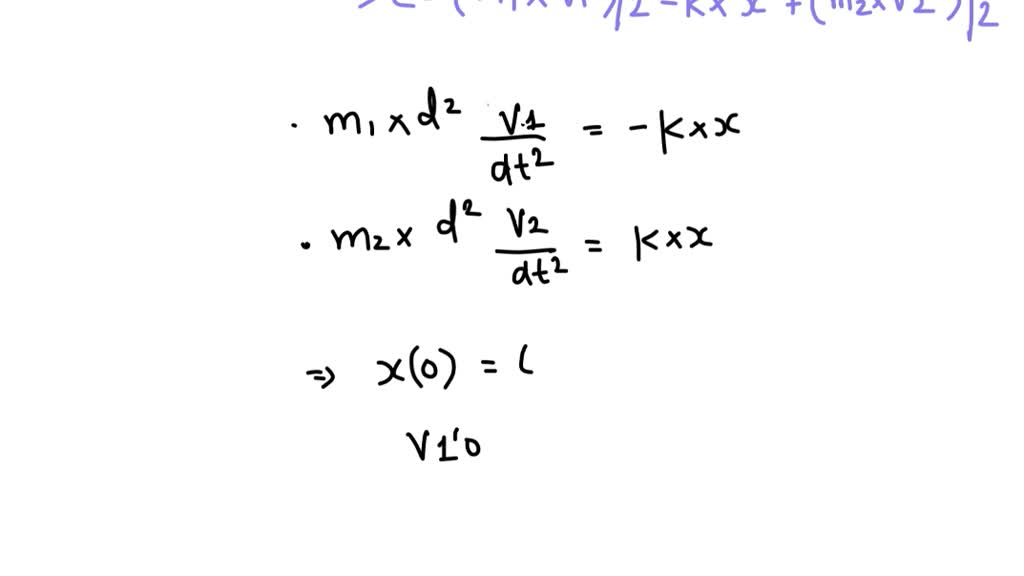 · m₁ × d² V1/dt² = -K × x
· m₂ × d² V2/dt² = K × x
⇒ x(0) = (
V1'0